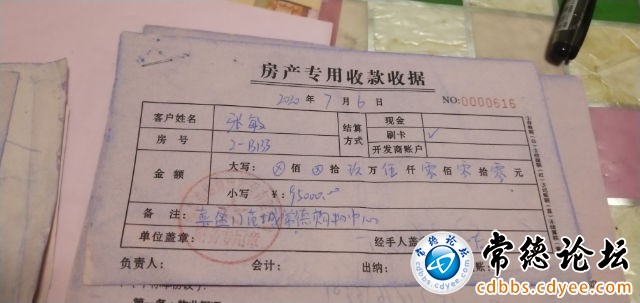 房产专用收款收据
2020 年 7 月 6 日 NO:0000616
客户姓名 张敏 结算方式 现金
房号 2-B133 刷卡 ✓
开发商账户
金额 大写: ⊗ 佰 ⊗ 拾 玖 万 伍 仟 零 佰 零 拾 零 元
小写 ¥: 95000.00
备注: 购物中心
单位盖章: 经手人盖
负责人: 会计: 出纳: 账:
常德论坛
cdbbs.cdyee.com
常德论坛